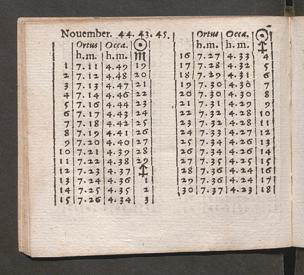 Nouember. 44. 43. 45.
Ortus Occa. ☉
h.m. h.m. ♏
1 7.11 4.49 19
2 7.12 4.48 20
3 7.13 4.47 21
4 7.14 4.46 22
5 7.16 4.44 23
6 7.17 4.43 24
7 7.18 4.42 25
8 7.19 4.41 26
9 7.20 4.40 27
10 7.21 4.39 28
11 7.22 4.38 29
12 7.23 4.37 ♐
13 7.24 4.36 1
14 7.25 4.35 2
15 7.26 4.34 3
Ortus Occa. ☉
h.m. h.m. ♐
16 7.27 4.33 4
17 7.28 4.32 5
18 7.29 4.31 6
19 7.30 4.30 7
20 7.30 4.30 8
21 7.31 4.29 9
22 7.32 4.28
23 7.33 4.27
24 7.34 4.26
25 7.34 4.26
26 7.35 4.25
27 7.35 4.25
28 7.36 4.24
29 7.36 4.24
30 7.37 4.23 18